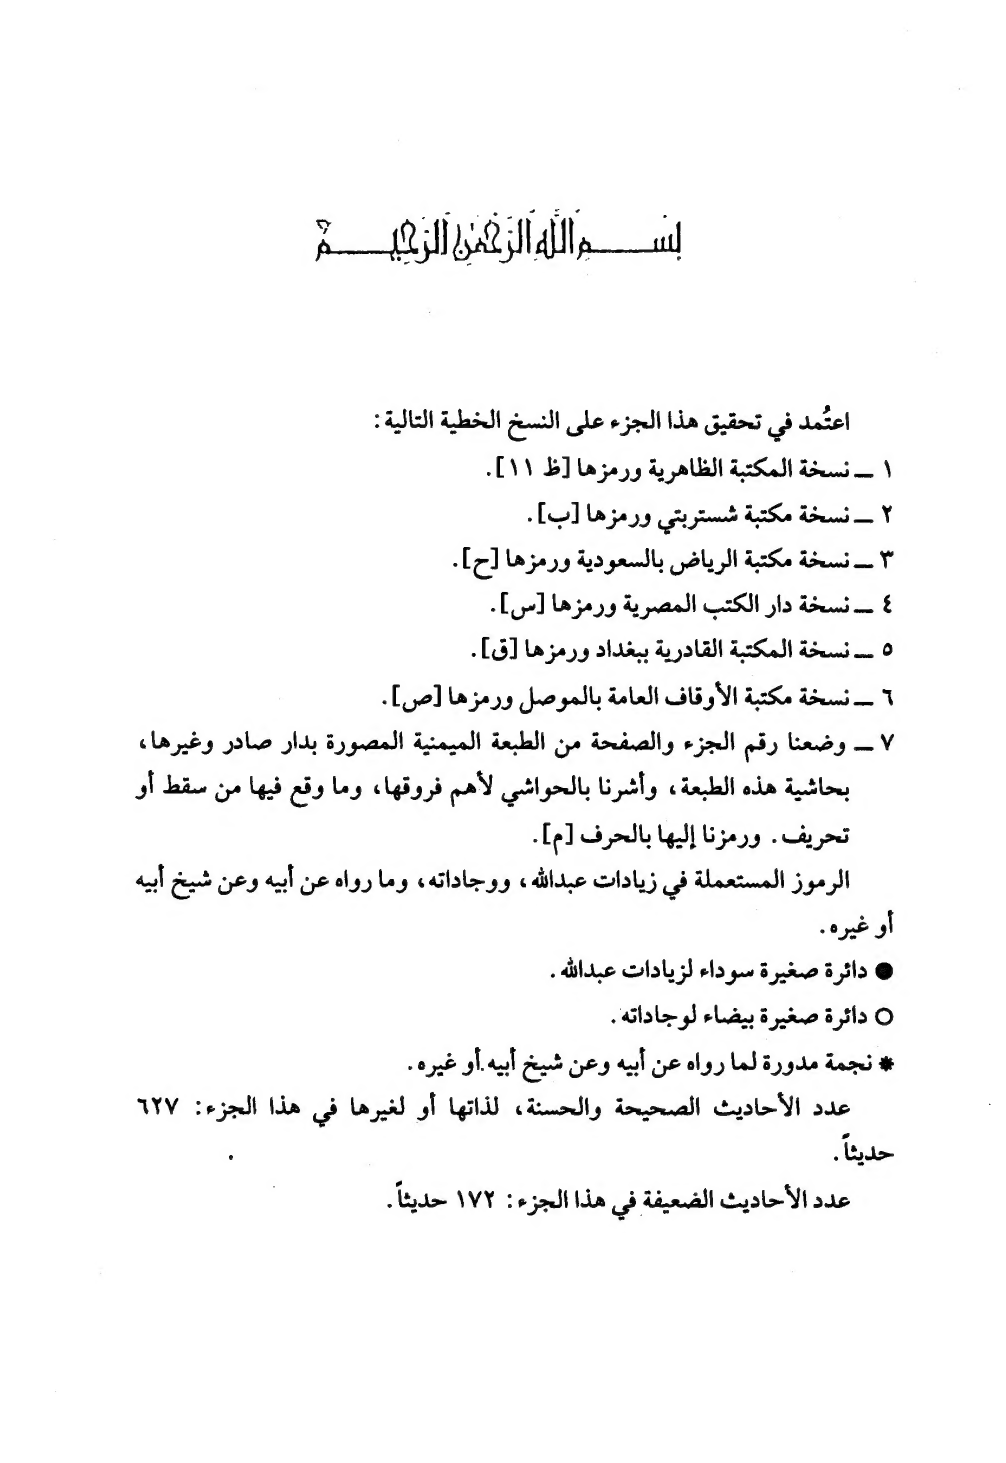 بِسْمِ اللَّهِ الرَّحْمَٰنِ الرَّحِيمِ
اعتُمد في تحقيق هذا الجزء على النسخ الخطية التالية:
١ ــ نسخة المكتبة الظاهرية ورمزها [ظ ١١].
٢ ــ نسخة مكتبة شستربتي ورمزها [ب].
٣ ــ نسخة مكتبة الرياض بالسعودية ورمزها [ح].
٤ ــ نسخة دار الكتب المصرية ورمزها [س].
٥ ــ نسخة المكتبة القادرية ببغداد ورمزها [ق].
٦ ــ نسخة مكتبة الأوقاف العامة بالموصل ورمزها [ص].
٧ ــ وضعنا رقم الجزء والصفحة من الطبعة الميمنية المصورة بدار صادر وغيرها،
بحاشية هذه الطبعة، وأشرنا بالحواشي لأهم فروقها، وما وقع فيها من سقط أو
تحريف. ورمزنا إليها بالحرف [م].
الرموز المستعملة في زيادات عبدالله، ووجاداته، وما رواه عن أبيه وعن شيخ أبيه
أو غيره.
● دائرة صغيرة سوداء لزيادات عبدالله.
○ دائرة صغيرة بيضاء لوجاداته.
* نجمة مدورة لما رواه عن أبيه وعن شيخ أبيه أو غيره.
عدد الأحاديث الصحيحة والحسنة، لذاتها أو لغيرها في هذا الجزء: ٦٢٧
حديثاً.
عدد الأحاديث الضعيفة في هذا الجزء: ١٧٢ حديثاً.